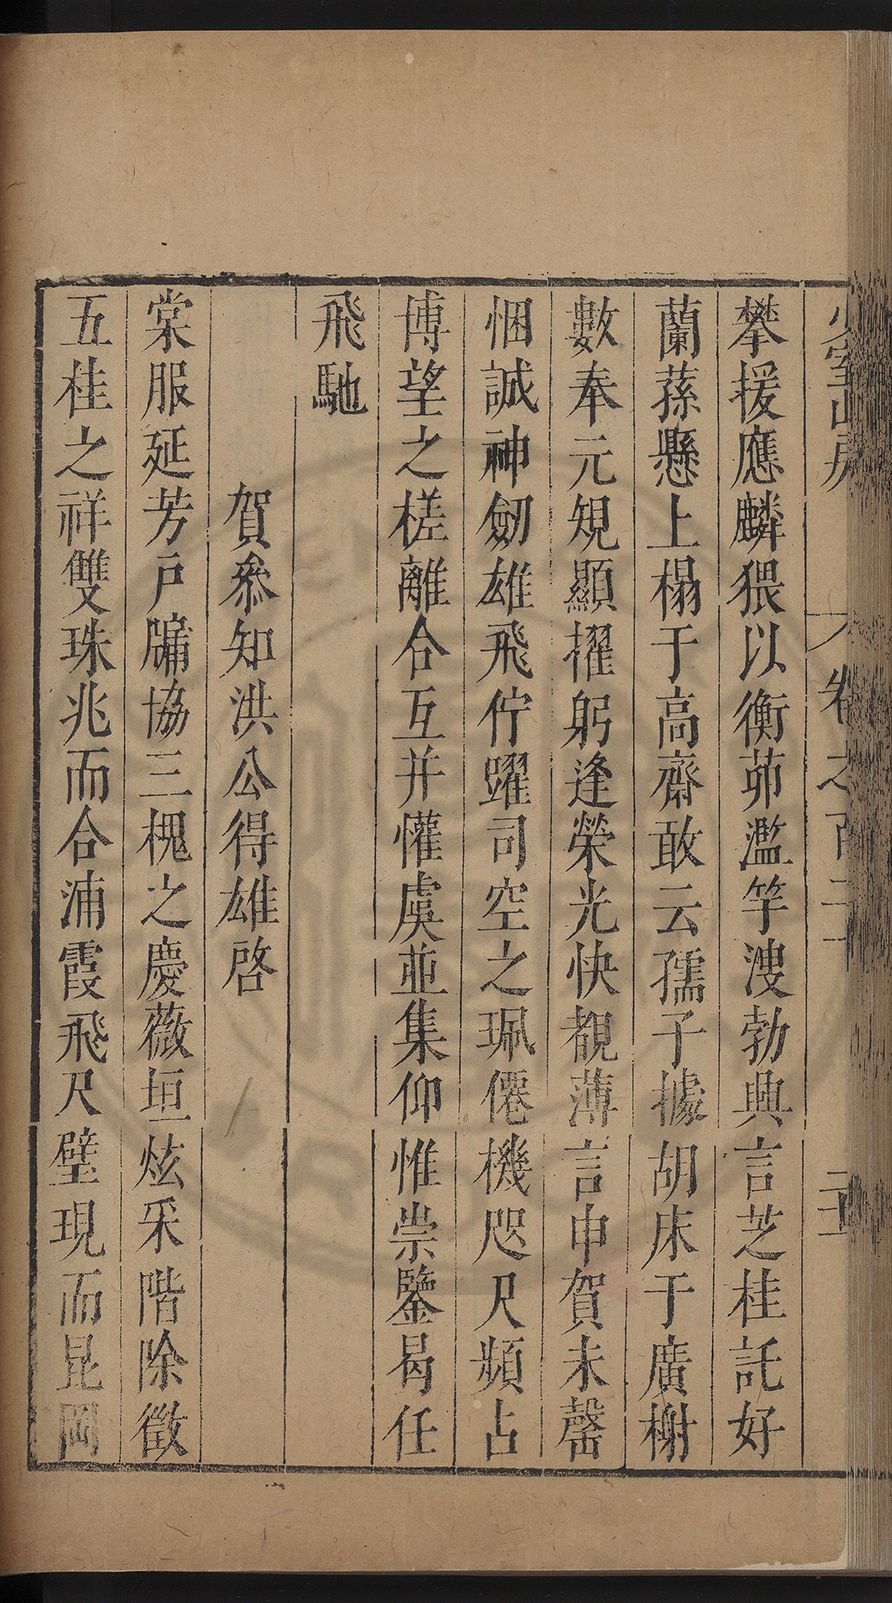 少室山房 卷之百二十
攀援應麟猥以衡茆濫竽溲勃興言芝桂託好
蘭蓀懸上榻于高齋敢云孺子據胡床于廣榭
數奉元規顯擢躬逢榮光快覩薄言申賀未罄
悃誠神劒雄飛佇躍司空之珮僊機咫尺頻占
博望之槎離合互并懽虞並集仰惟崇鑒曷任
飛馳
賀叅知洪公得雄啓
棠服延芳戶牖協三槐之慶薇垣炫采階除徵
五桂之祥雙珠兆而合浦霞飛尺璧現而昆岡